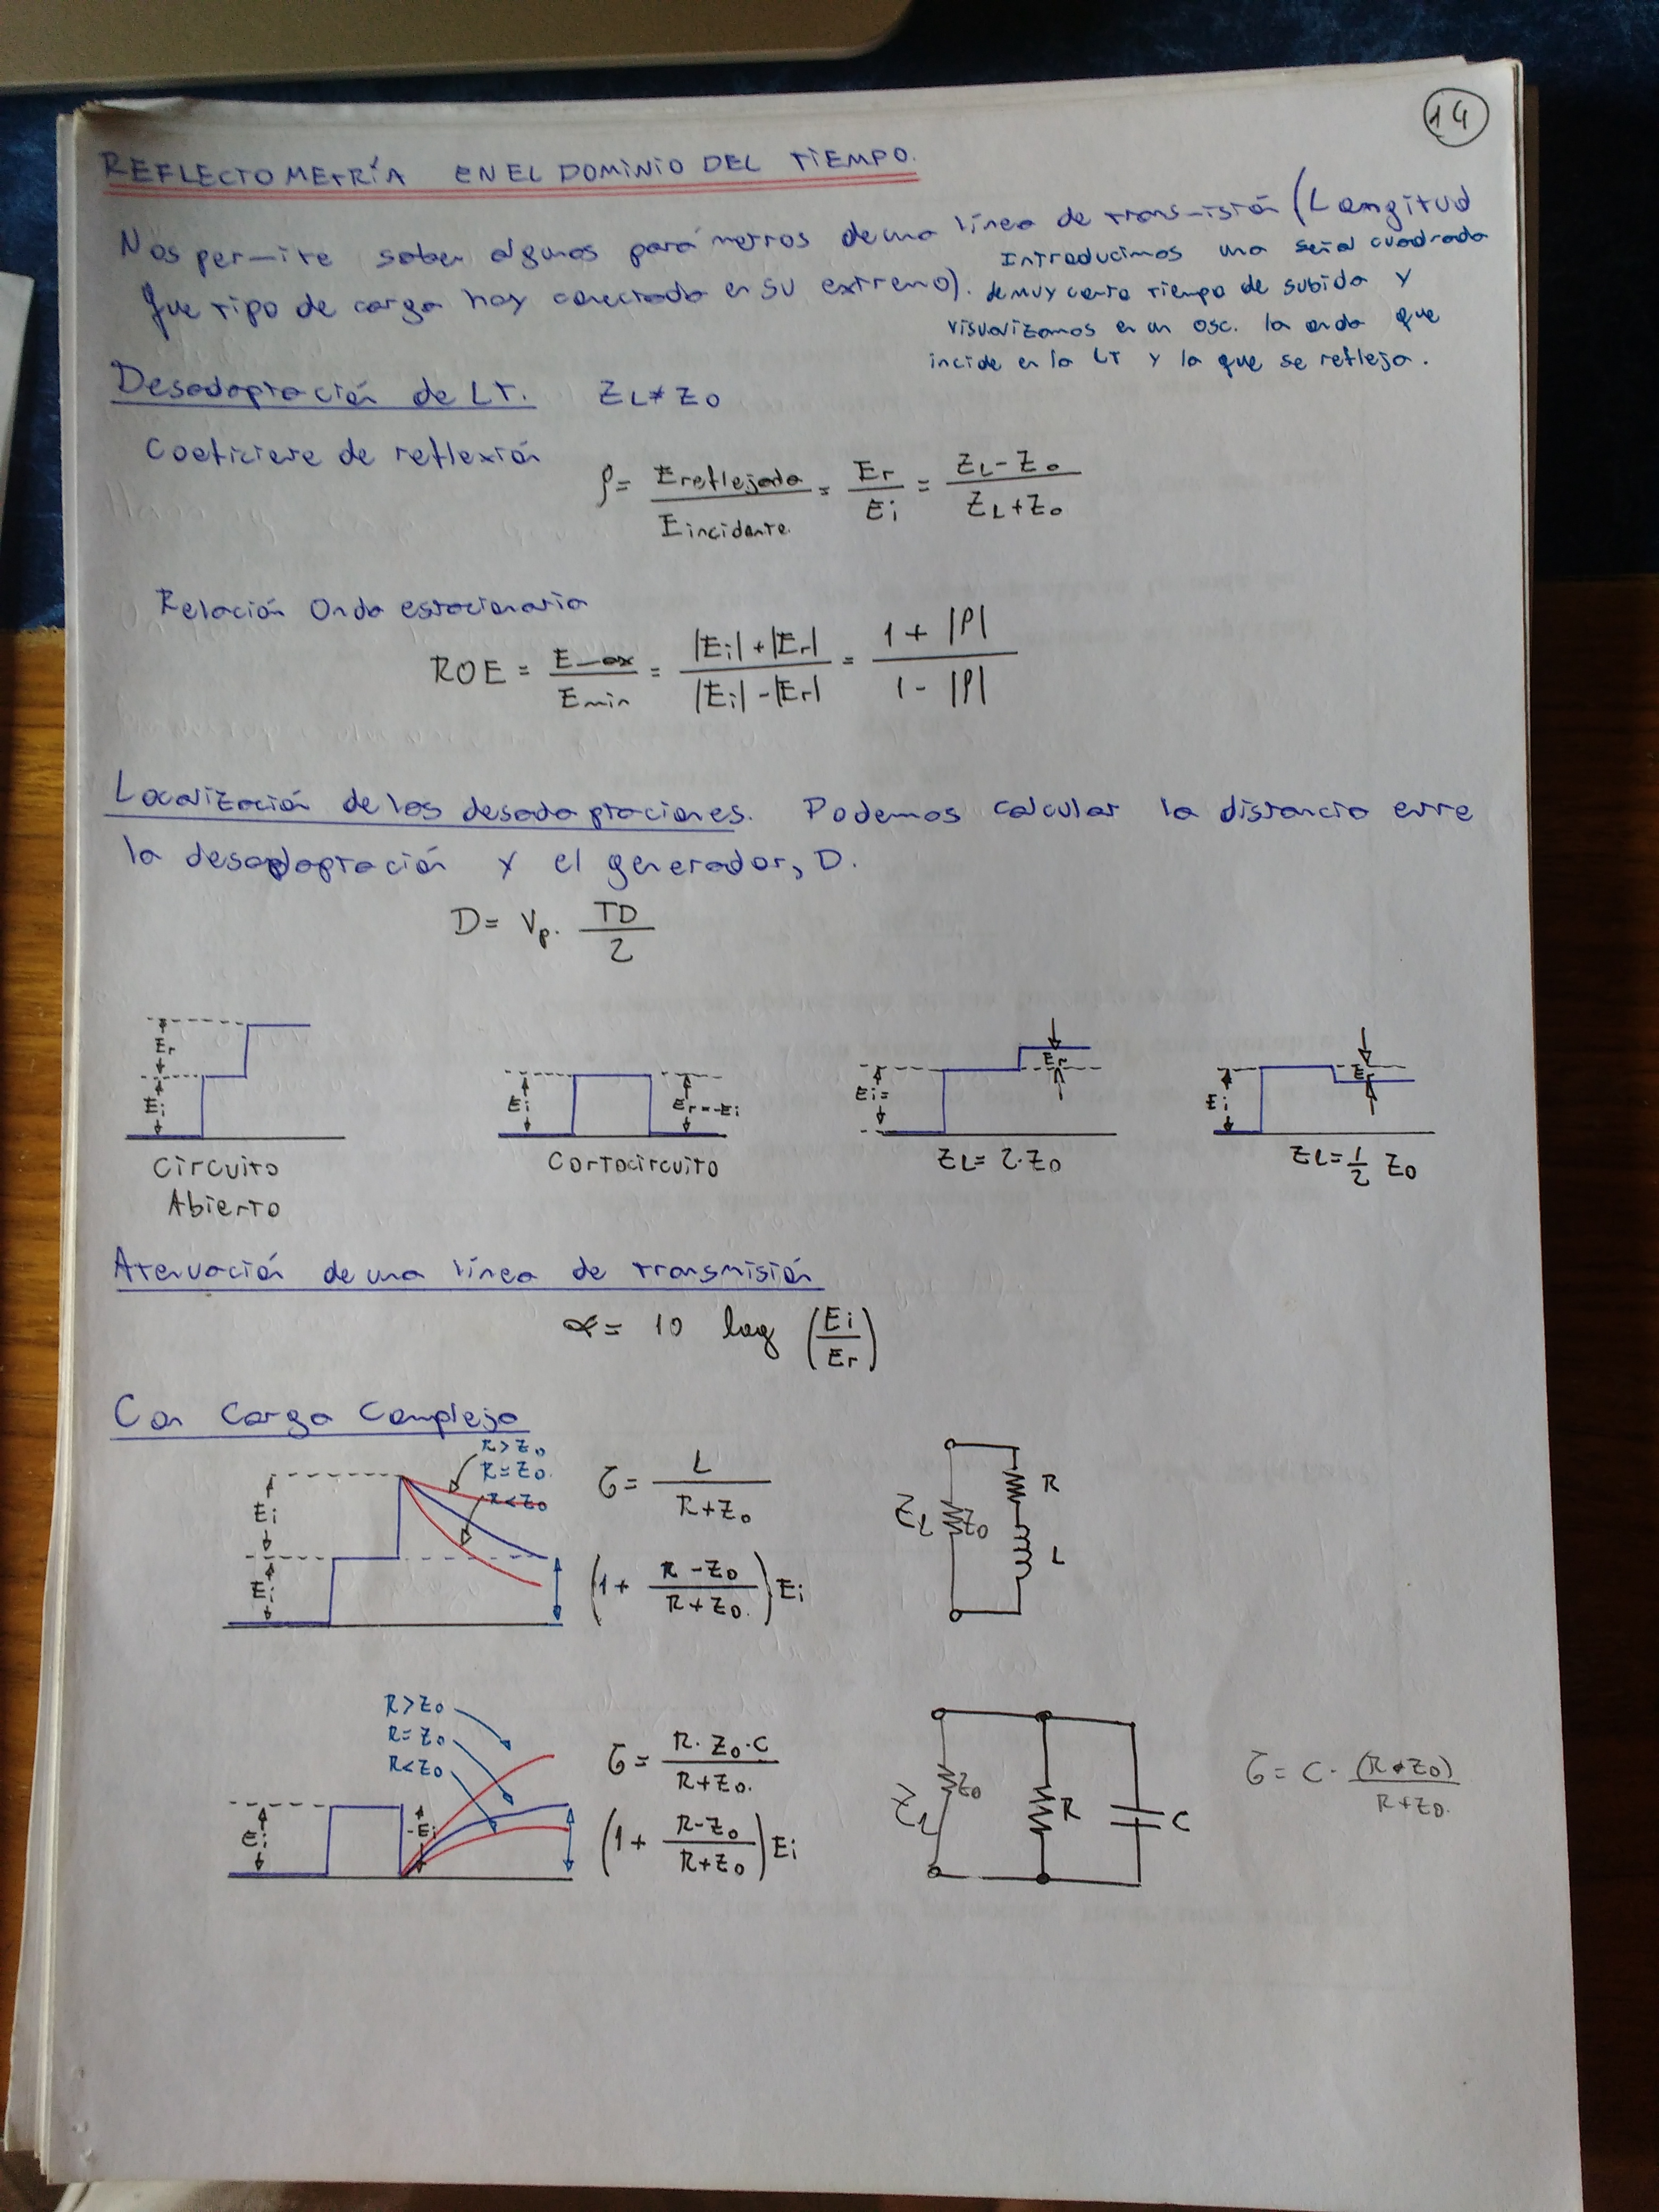 14
REFLECTOMETRÍA EN EL DOMINIO DEL TIEMPO.
Nos permite saber algunos parámetros de una línea de transmisión (Longitud
Que tipo de carga hay conectada en su extremo).
Introducimos una señal cuadrada
de muy corto tiempo de subida y
visualizamos en un osc. la onda que
incide en la LT y la que se refleja.
Desadaptación de LT. ZL≠Z0
Coeficiente de reflexión
ρ= Ereflejada/Eincidente. = Er/Ei = ZL-Z0/ZL+Z0
Relación Onda estacionaria
ROE = Emax/Emin = |Ei|+|Er|/|Ei|-|Er| = 1+|ρ|/1-|ρ|
Localización de las desadaptaciones. Podemos calcular la distancia entre
la desadaptación y el generador, D.
D= Vp. TD/2
Er
Ei
Circuito
Abierto
Ei
Er=-Ei
Cortocircuito
Ei=
Er
ZL=2·Z0
Ei
Er
ZL=1/2 Z0
Atenuación de una línea de transmisión
α= 10 log (Ei/Er)
Con Carga Compleja
R>Z0
R=Z0.
R<Z0
Ei
Ei
τ= L/R+Z0
(1+ R-Z0/R+Z0.)Ei
ZL
Z0
R
L
R>Z0
R=Z0
R<Z0
Ei
-Ei
τ= R·Z0·C/R+Z0.
(1+ R-Z0/R+Z0)Ei
ZL
Z0
R
C
τ= C· (R·Z0)/R+Z0.